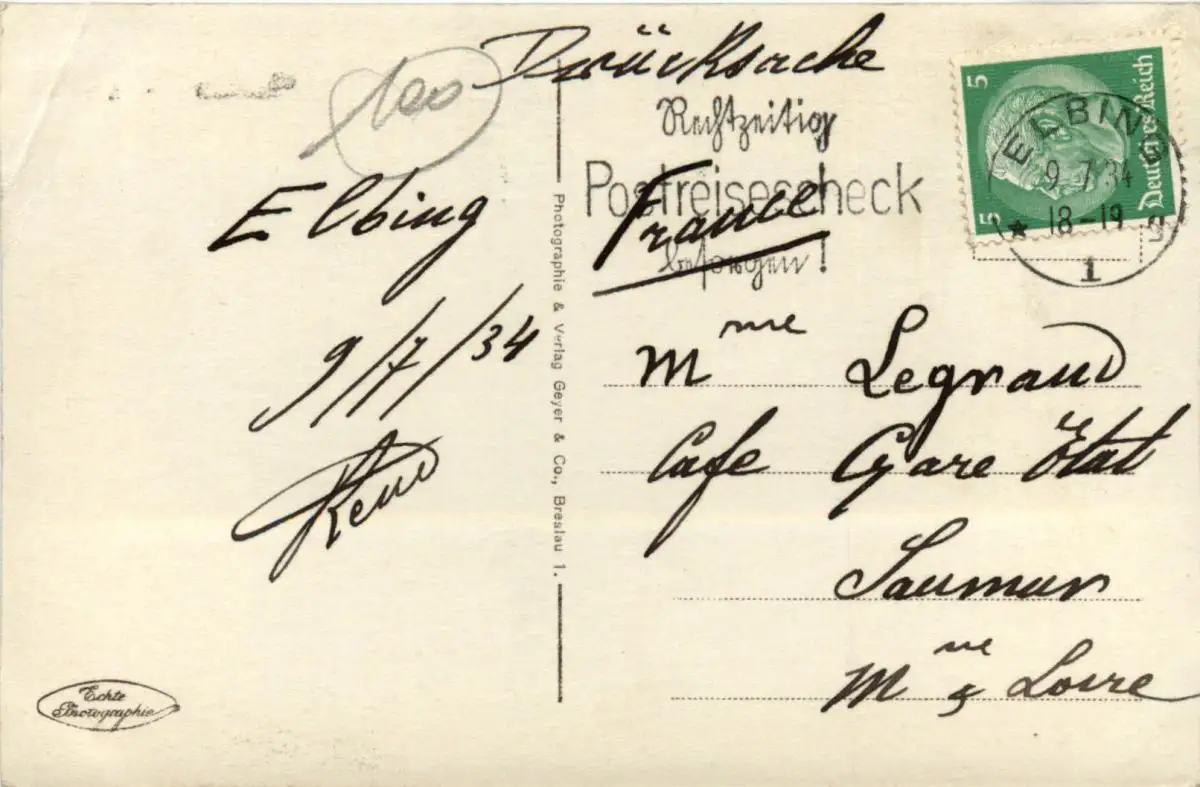 Drücksache
100
Rechtzeitig
Postreisescheck
besorgen!
5 Deutsches Reich 5
ELBING
9.7.34
18-19
1
Elbing
9/7/34
France
Mme Legrand
Cafe Gare Etat
Saumur
Mne & Loire
Photographie & Verlag Geyer & Co., Breslau 1.
Echte
Photographie